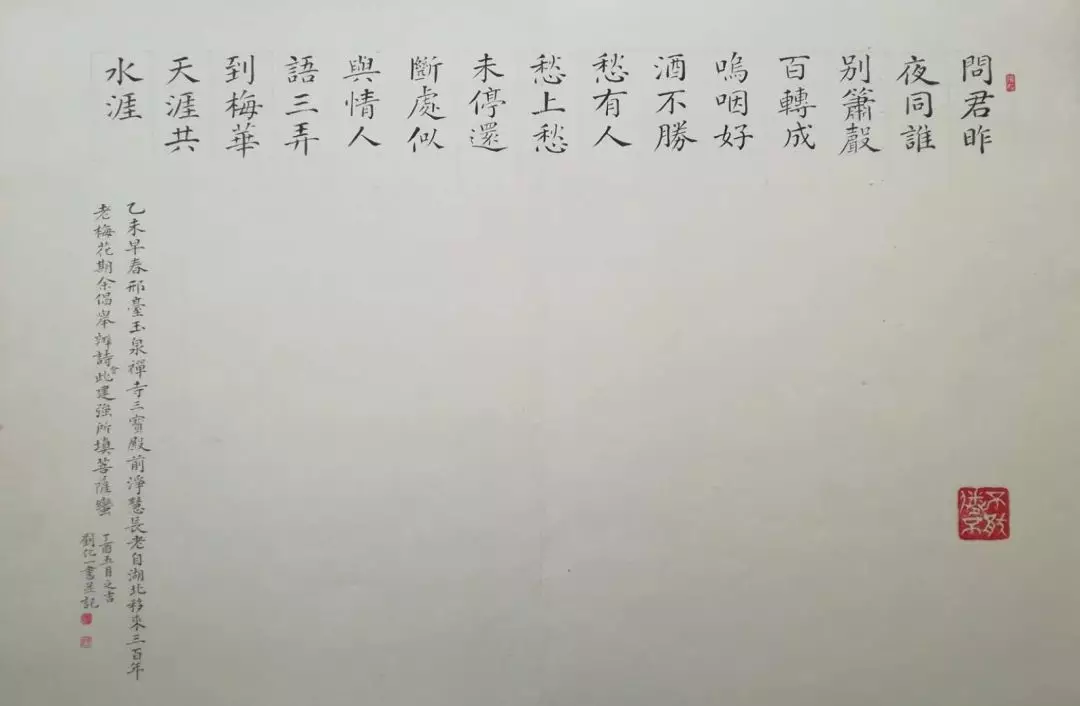 問君昨
夜同誰
別簫聲
百轉成
嗚咽好
酒不勝
愁有人
愁上愁
未停還
斷處似
與情人
語三弄
到梅華
天涯共
水涯
乙未早春邢臺玉泉禪寺三寶殿前淨慧長老自湖北移來三百年
老梅花期余倡舉辦詩會此建強所填菩薩蠻
丁酉五月之吉
劉化一書並記